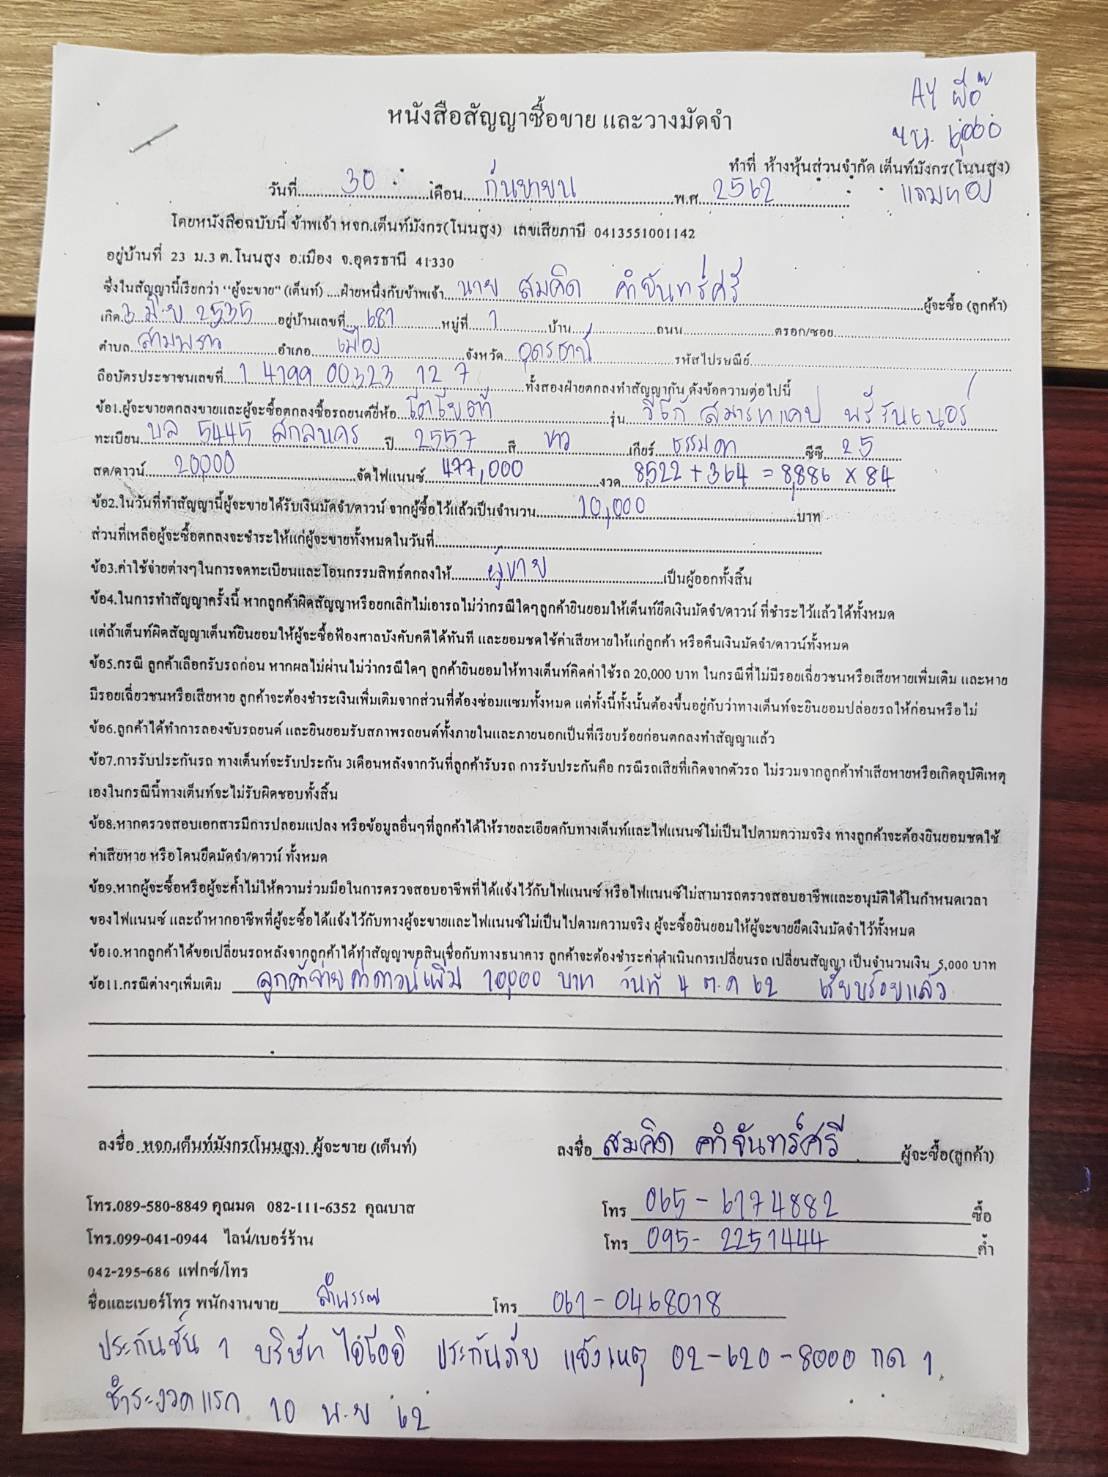 AY
หนังสือสัญญาซื้อขาย และวางมัดจำ
ทำที่ ห้างหุ้นส่วนจำกัด เต็นท์มังกร(โนนสูง)
วันที่ 30 เดือน กันยายน พ.ศ. 2562 แถมทอง
โดยหนังสือฉบับนี้ ข้าพเจ้า หจก.เต็นท์มังกร(โนนสูง) เลขเสียภาษี 0413551001142
อยู่บ้านที่ 23 ม.3 ต.โนนสูง อ.เมือง จ.อุดรธานี 41330
ซึ่งในสัญญานี้เรียกว่า "ผู้จะขาย" (เต็นท์) ....ฝ่ายหนึ่งกับข้าพเจ้า นาย สมคิด คำจันทร์ศรี ผู้จะซื้อ (ลูกค้า)
เกิด 3 มิ.ย 2535 อยู่บ้านเลขที่ 681 หมู่ที่ 1 บ้าน ถนน ตรอก/ซอย
ตำบล สามพร้าว อำเภอ เมือง จังหวัด อุดรธานี รหัสไปรษณีย์
ถือบัตรประชาชนเลขที่ 1 4199 00323 12 7 ทั้งสองฝ่ายตกลงทำสัญญากัน ดังข้อความต่อไปนี้
ข้อ1.ผู้จะขายตกลงขายและผู้จะซื้อตกลงซื้อรถยนต์ยี่ห้อ โตโยต้า รุ่น วีโก้ สมาร์ทแคป พรีรันเนอร์
ทะเบียน บล 5445 สกลนคร ปี 2557 สี ขาว เกียร์ ธรรมดา ซีซี 25
สด/ดาวน์ 20,000 จัดไฟแนนซ์ 477,000 งวด 8522 + 364 = 8,886 x 84
ข้อ2.ในวันที่ทำสัญญานี้ผู้จะขายได้รับเงินมัดจำ/ดาวน์ จากผู้ซื้อไว้แล้วเป็นจำนวน 10,000 บาท
ส่วนที่เหลือผู้จะซื้อตกลงจะชำระให้แก่ผู้จะขายทั้งหมดในวันที่
ข้อ3.ค่าใช้จ่ายต่างๆในการจดทะเบียนและโอนกรรมสิทธ์ตกลงให้ ผู้ขาย เป็นผู้ออกทั้งสิ้น
ข้อ4.ในการทำสัญญาครั้งนี้ หากลูกค้าผิดสัญญาหรือยกเลิกไม่เอารถไม่ว่ากรณีใดๆลูกค้ายินยอมให้เต็นท์ยึดเงินมัดจำ/ดาวน์ ที่ชำระไว้แล้วได้ทั้งหมด
แต่ถ้าเต็นท์ผิดสัญญาเต็นท์ยินยอมให้ผู้จะซื้อฟ้องศาลบังคับคดีได้ทันที และยอมชดใช้ค่าเสียหายให้แก่ลูกค้า หรือคืนเงินมัดจำ/ดาวน์ทั้งหมด
ข้อ5.กรณี ลูกค้าเลือกรับรถก่อน หากผลไม่ผ่านไม่ว่ากรณีใดๆ ลูกค้ายินยอมให้ทางเต็นท์คิดค่าใช้รถ 20,000 บาท ในกรณีที่ไม่มีรอยเฉี่ยวชนหรือเสียหายเพิ่มเติม และหาย
มีรอยเฉี่ยวชนหรือเสียหาย ลูกค้าจะต้องชำระเงินเพิ่มเติมจากส่วนที่ต้องซ่อมแซมทั้งหมด แต่ทั้งนี้ทั้งนั้นต้องขึ้นอยู่กับว่าทางเต็นท์จะยินยอมปล่อยรถให้ก่อนหรือไม่
ข้อ6.ลูกค้าได้ทำการลองขับรถยนต์ และยินยอมรับสภาพรถยนต์ทั้งภายในและภายนอกเป็นที่เรียบร้อยก่อนตกลงทำสัญญาแล้ว
ข้อ7.การรับประกันรถ ทางเต็นท์จะรับประกัน 3เดือนหลังจากวันที่ลูกค้ารับรถ การรับประกันคือ กรณีรถเสียที่เกิดจากตัวรถ ไม่รวมจากลูกค้าทำเสียหายหรือเกิดอุบัติเหตุ
เองในกรณีนี้ทางเต็นท์จะไม่รับผิดชอบทั้งสิ้น
ข้อ8.หากตรวจสอบเอกสารมีการปลอมแปลง หรือข้อมูลอื่นๆที่ลูกค้าได้ให้รายละเอียดกับทางเต็นท์และไฟแนนซ์ไม่เป็นไปตามความจริง ทางลูกค้าจะต้องยินยอมชดใช้
ค่าเสียหาย หรือโดนยึดมัดจำ/ดาวน์ ทั้งหมด
ข้อ9.หากผู้จะซื้อหรือผู้จะค้ำไม่ให้ความร่วมมือในการตรวจสอบอาชีพที่ได้แจ้งไว้กับไฟแนนซ์ หรือไฟแนนซ์ไม่สามารถตรวจสอบอาชีพและอนุมัติได้ในกำหนดเวลา
ของไฟแนนซ์ และถ้าหากอาชีพที่ผู้จะซื้อได้แจ้งไว้กับทางผู้จะขายและไฟแนนซ์ไม่เป็นไปตามความจริง ผู้จะซื้อยินยอมให้ผู้จะขายยึดเงินมัดจำไว้ทั้งหมด
ข้อ10.หากลูกค้าได้ขอเปลี่ยนรถหลังจากลูกค้าได้ทำสัญญาขอสินเชื่อกับทางธนาคาร ลูกค้าจะต้องชำระค่าดำเนินการเปลี่ยนรถ เปลี่ยนสัญญา เป็นจำนวนเงิน 5,000 บาท
ข้อ11.กรณีต่างๆเพิ่มเติม ลูกค้าจ่ายค่าดาวน์เพิ่ม 10,000 บาท วันที่ 4 ต.ค 62 เรียบร้อยแล้ว
ลงชื่อ หจก.เต็นท์มังกร(โนนสูง) ผู้จะขาย (เต็นท์) ลงชื่อ สมคิด คำจันทร์ศรี ผู้จะซื้อ(ลูกค้า)
โทร.089-580-8849 คุณมด 082-111-6352 คุณบาส โทร 065-6174882 ซื้อ
โทร.099-041-0944 ไลน์/เบอร์ร้าน โทร 095-2251444 ค้ำ
042-295-686 แฟกซ์/โทร
ชื่อและเบอร์โทร พนักงานขาย ลำพรรณ โทร 061-0468018
ประกันชั้น 1 บริษัท ไอโออิ ประกันภัย แจ้งเหตุ 02-620-8000 กด 1
ชำระงวดแรก 10 พ.ย 62